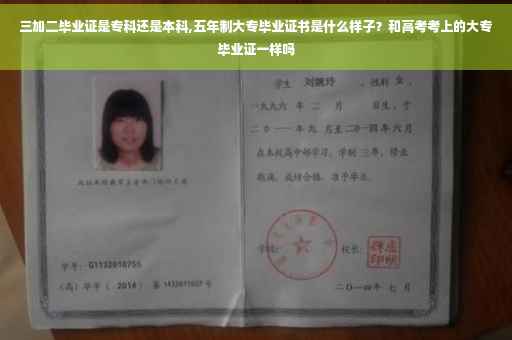 三加二毕业证是专科还是本科,五年制大专毕业证书是什么样子？和高考考上的大专
毕业证一样吗
学生 刘婉玲 ，性别 女 ，
一九九六 年 二 月 日生，于
二〇一一年九 月至二〇一四年 六月
在本校高中部学习，学制 三年，修业
期满，成绩合格，准予毕业。
学号： G1132010755
学校： 校长：
（高）毕字（ 2014 ）第 1432011027 号
二〇一四年 七 月